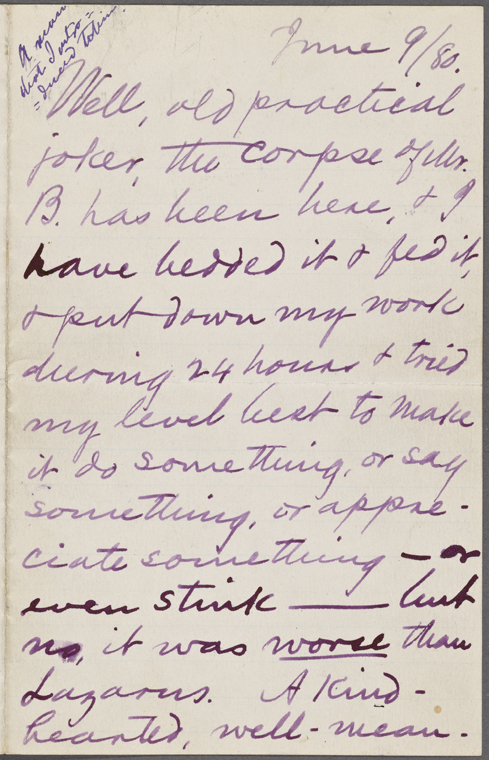 A man
that I intro=
=duced to him.
June 9/80.
Well, old practical
joker, the corpse of Mr.
B. has been here, & I
have bedded it & fed it,
& put down my work
during 24 hours & tried
my level best to make
it do something, or say
something, or appre-
ciate something — or
even stink —— but
no, it was worse than
Lazarus. A kind-
hearted, well-mean-